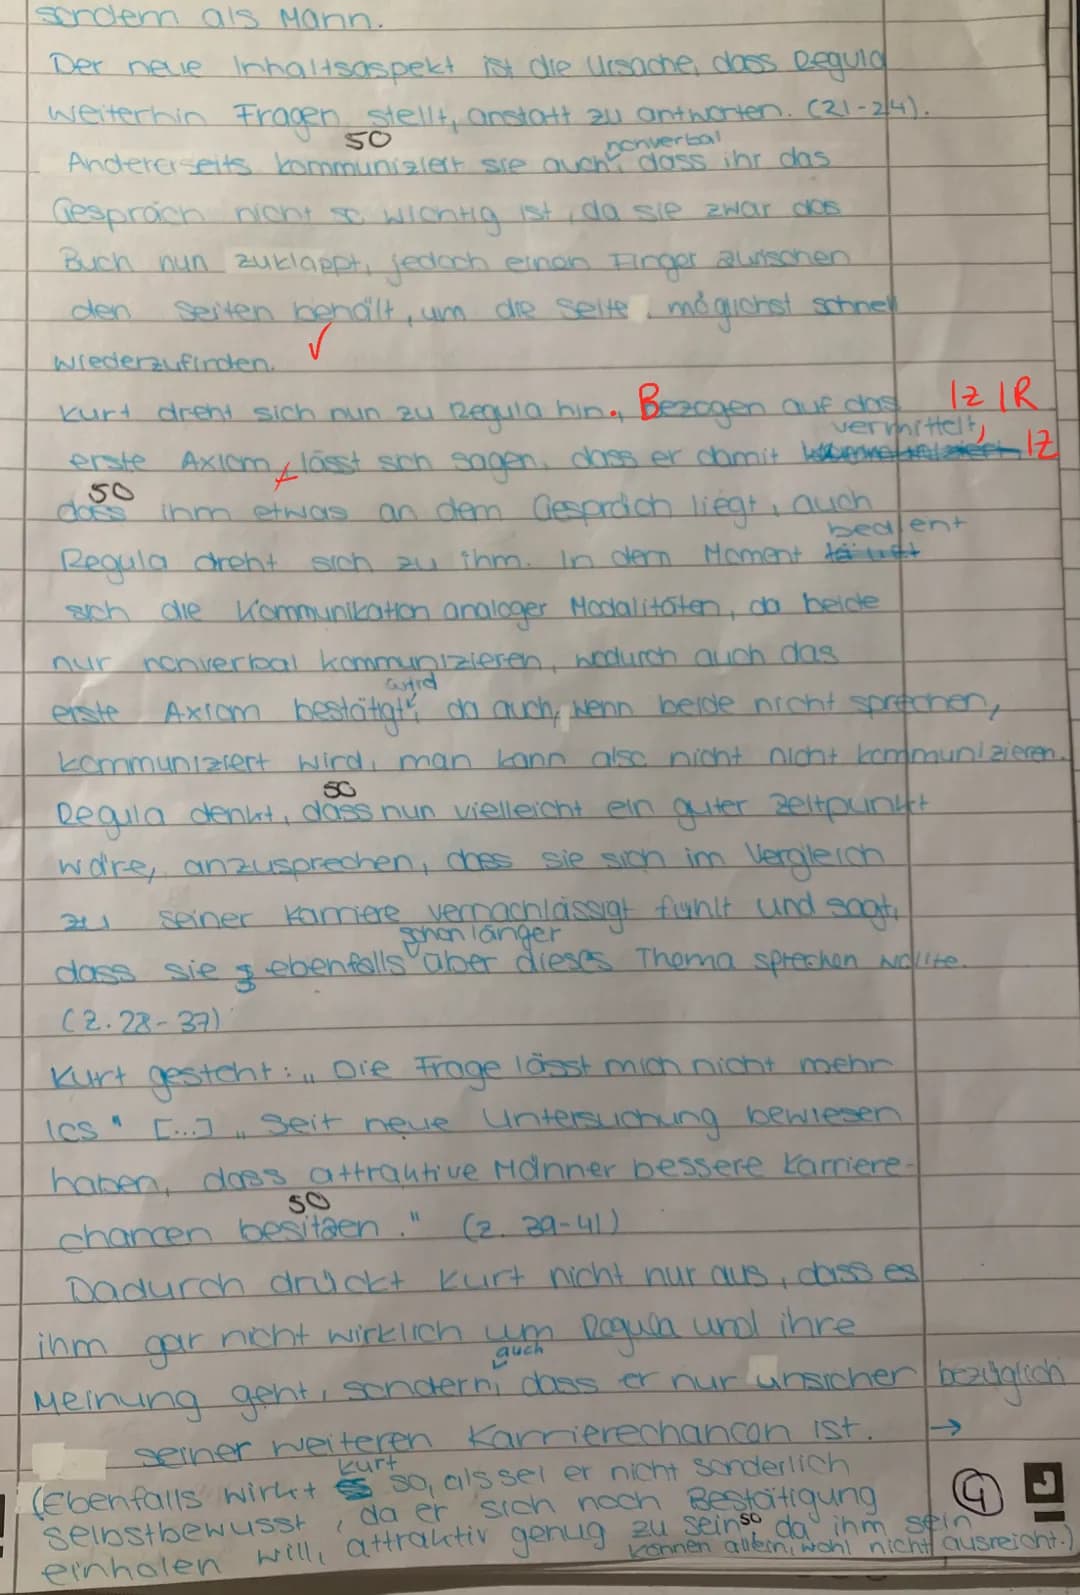 sondern als Mann.
Der neue Inhaltsaspekt ist die Ursache, dass Regula
weiterhin Fragen stellt, anstatt zu antworten. (21-24).
50 nonverbal
Andererseits kommuniziert sie auch, dass ihr das
Gespräch nicht so wichtig ist, da sie zwar das
Buch nun zuklappt, jedoch einen Finger zwischen
den Seiten behält, um die Seite möglichst schnell
wiederzufinden. ✓
Kurt dreht sich nun zu Regula hin. Bezogen auf das |Z |R
vermittelt,
erste Axiom lässt sich sagen, dass er damit |Z
50
dass ihm etwas an dem Gespräch liegt, auch
bedient
Regula dreht sich zu ihm. In dem Moment läuft
sich die Kommunikation analoger Modalitäten, da beide
nur nonverbal kommunizieren, wodurch auch das
wird
erste Axiom bestätigt, da auch, wenn beide nicht sprechen,
kommuniziert wird, man kann also nicht nicht kommunizieren.
50
Regula denkt, dass nun vielleicht ein guter Zeitpunkt
wäre, anzusprechen, dass sie sich im Vergleich
zu seiner Karriere vernachlässigt fühlt und sagt,
schon länger
dass sie ebenfalls über dieses Thema sprechen wollte.
(Z. 28-37)
Kurt gesteht: „Die Frage lässt mich nicht mehr
los" [...] „Seit neue Untersuchung bewiesen
haben, dass attraktive Männer bessere Karriere-
50
chancen besitzen." (Z. 39-41)
Dadurch drückt Kurt nicht nur aus, dass es
ihm gar nicht wirklich um Regula und ihre
auch
Meinung geht, sondern, dass er nur unsicher bezüglich
seiner weiteren Karrierechancen ist. →
Kurt
(Ebenfalls wirkt so, als sei er nicht sonderlich
selbstbewusst, da er sich noch Bestätigung
einholen will, attraktiv genug zu sein, da ihm sein
50
Können allein, wohl nicht ausreicht.)
④ J